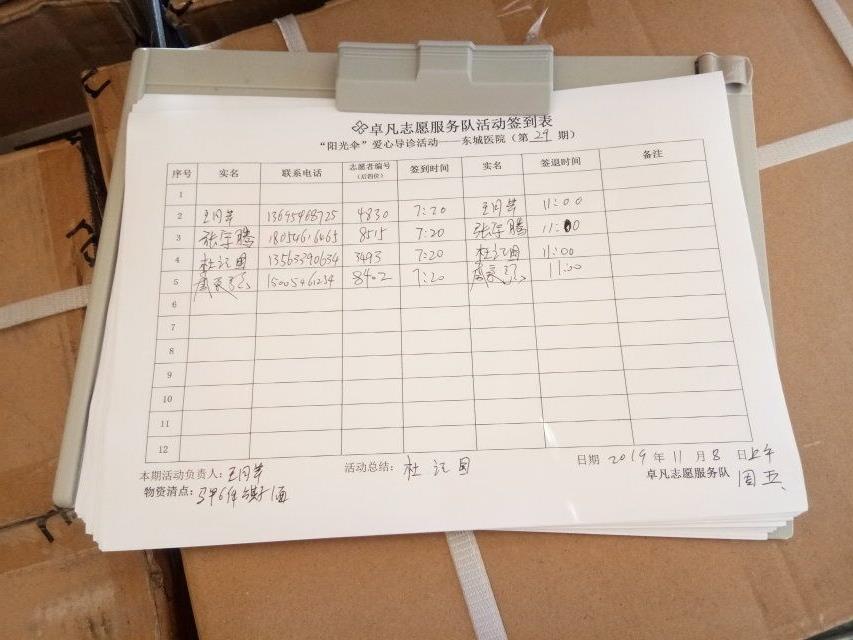 卓凡志愿服务队活动签到表
“阳光伞”爱心导诊活动——东城医院（第 29 期）
序号 实名 联系电话 志愿者编号（后四位） 签到时间 实名 签退时间 备注
1
2 4830 7:20 11:00
3 张宇腾 8515 7:20 张宇腾 11:00
4 杜江国 13563390634 3493 7:20 杜江国 11:00
5 15005461234 8402 7:20 11:00
6
7
8
9
10
11
12
本期活动负责人： 活动总结：杜江国 日期 2019 年 11 月 8 日上午
物资清点：马甲6件 卓凡志愿服务队 周五